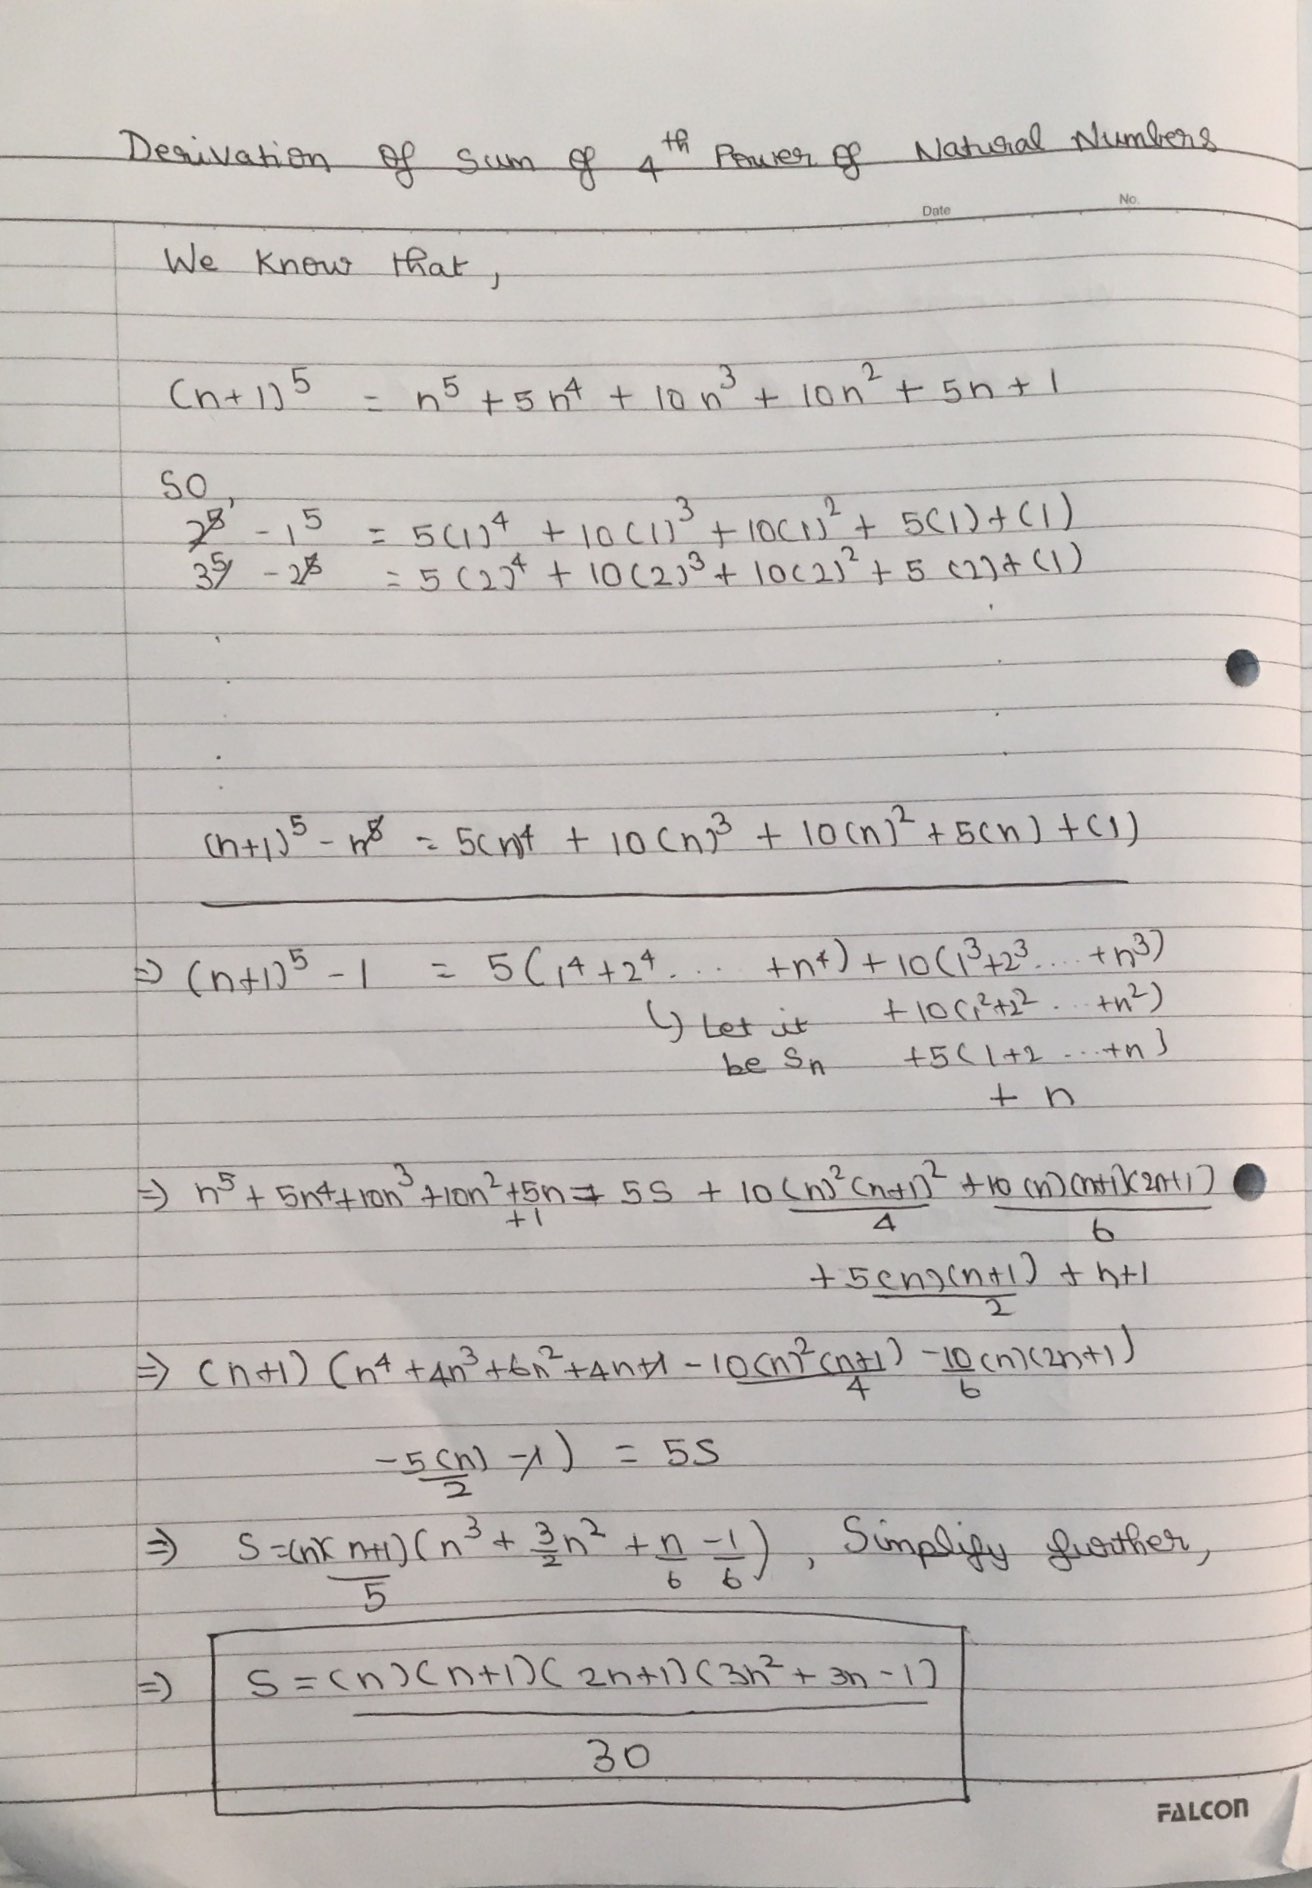 Derivation of Sum of 4th Power of Natural Numbers
Date No.
We know that,
(n+1)⁵ = n⁵ + 5n⁴ + 10n³ + 10n² + 5n + 1
SO,
2⁵ - 1⁵ = 5(1)⁴ + 10(1)³ + 10(1)² + 5(1) + (1)
3⁵ - 2⁵ = 5(2)⁴ + 10(2)³ + 10(2)² + 5(2) + (1)
(n+1)⁵ - n⁵ = 5(n)⁴ + 10(n)³ + 10(n)² + 5(n) + (1)
⇒ (n+1)⁵ - 1 = 5(1⁴ + 2⁴ . . . . +n⁴) + 10(1³+2³. . . . +n³)
↳ Let it +10(1²+2² . . . +n²)
be Sn +5(1+2 . . . +n)
+ n
⇒ n⁵ + 5n⁴ + 10n³ + 10n² + 5n + 1 = 5S + 10(n)²(n+1)²/4 + 10(n)(n+1)(2n+1)/6
+ 5(n)(n+1)/2 + n+1
⇒ (n+1) (n⁴ + 4n³ + 6n² + 4n + 1 - 10(n)²(n+1)/4 - 10(n)(2n+1)/6
- 5(n)/2 - 1) = 5S
⇒ S = (n)(n+1)/5 (n³ + 3/2 n² + n/6 - 1/6), Simplify further,
⇒ S = (n)(n+1)(2n+1)(3n² + 3n - 1)
30
FALCON